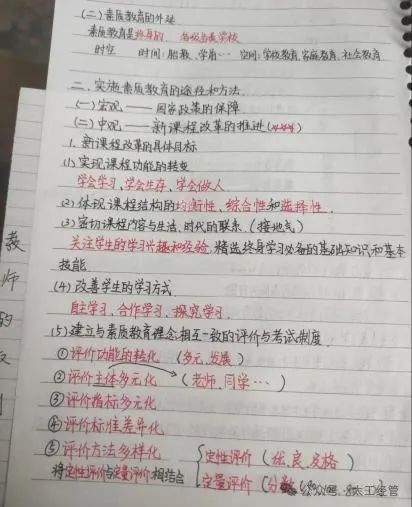 (二)素质教育的外延
素质教育是终身的、各级各类学校
时空 时间:胎教、学前… 空间:学校教育、家庭教育、社会教育
二、实施素质教育的途径和方法
(一)宏观——国家改革的保障
(二)中观——新课程改革的推进
1. 新课程改革的具体目标
(1)实现课程功能的转变
学会学习、学会生存、学会做人
(2)体现课程结构的均衡性、综合性和选择性.
(3)密切课程内容与生活、时代的联系(接地气)
关注学生的学习兴趣和经验,精选终身学习必备的基础知识和基本
技能
(4)改善学生的学习方式
自主学习、合作学习、探究学习.
(5)建立与素质教育理念相互一致的评价与考试制度
①评价功能的转化 (多元,发展)
②评价主体多元化 (老师、同学…)
③评价指标多元化
④评价标准差异化
⑤评价方法多样化 定性评价(优、良、及格)
将定性评价与定量评价相结合 定量评价(分数
教
师
的